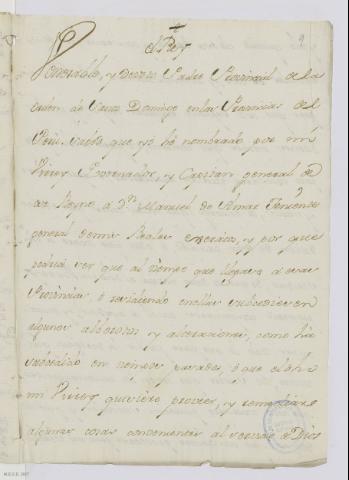 El Rey
Venerable, y Devoto Padre Provincial de la
orden de Santo Domingo en las Provincias del
Perú. Sabed que yó hé nombrado por mi
Virrey Governador, y Capitan general de
ese Reyno á Dn. Manuel de Amat Theniente
general de mis Reales exercitos, y por que
podria ser que al tiempo que llegare á esas
Provincias, ó estando en ellas subcediesen
algunos alborotos y alteraciones, como há
subcedido en tiempos pasados, ó que el dicho
mi Virrey quisiere proveer, y remediare
algunas cosas convenientes al servicio de Dios